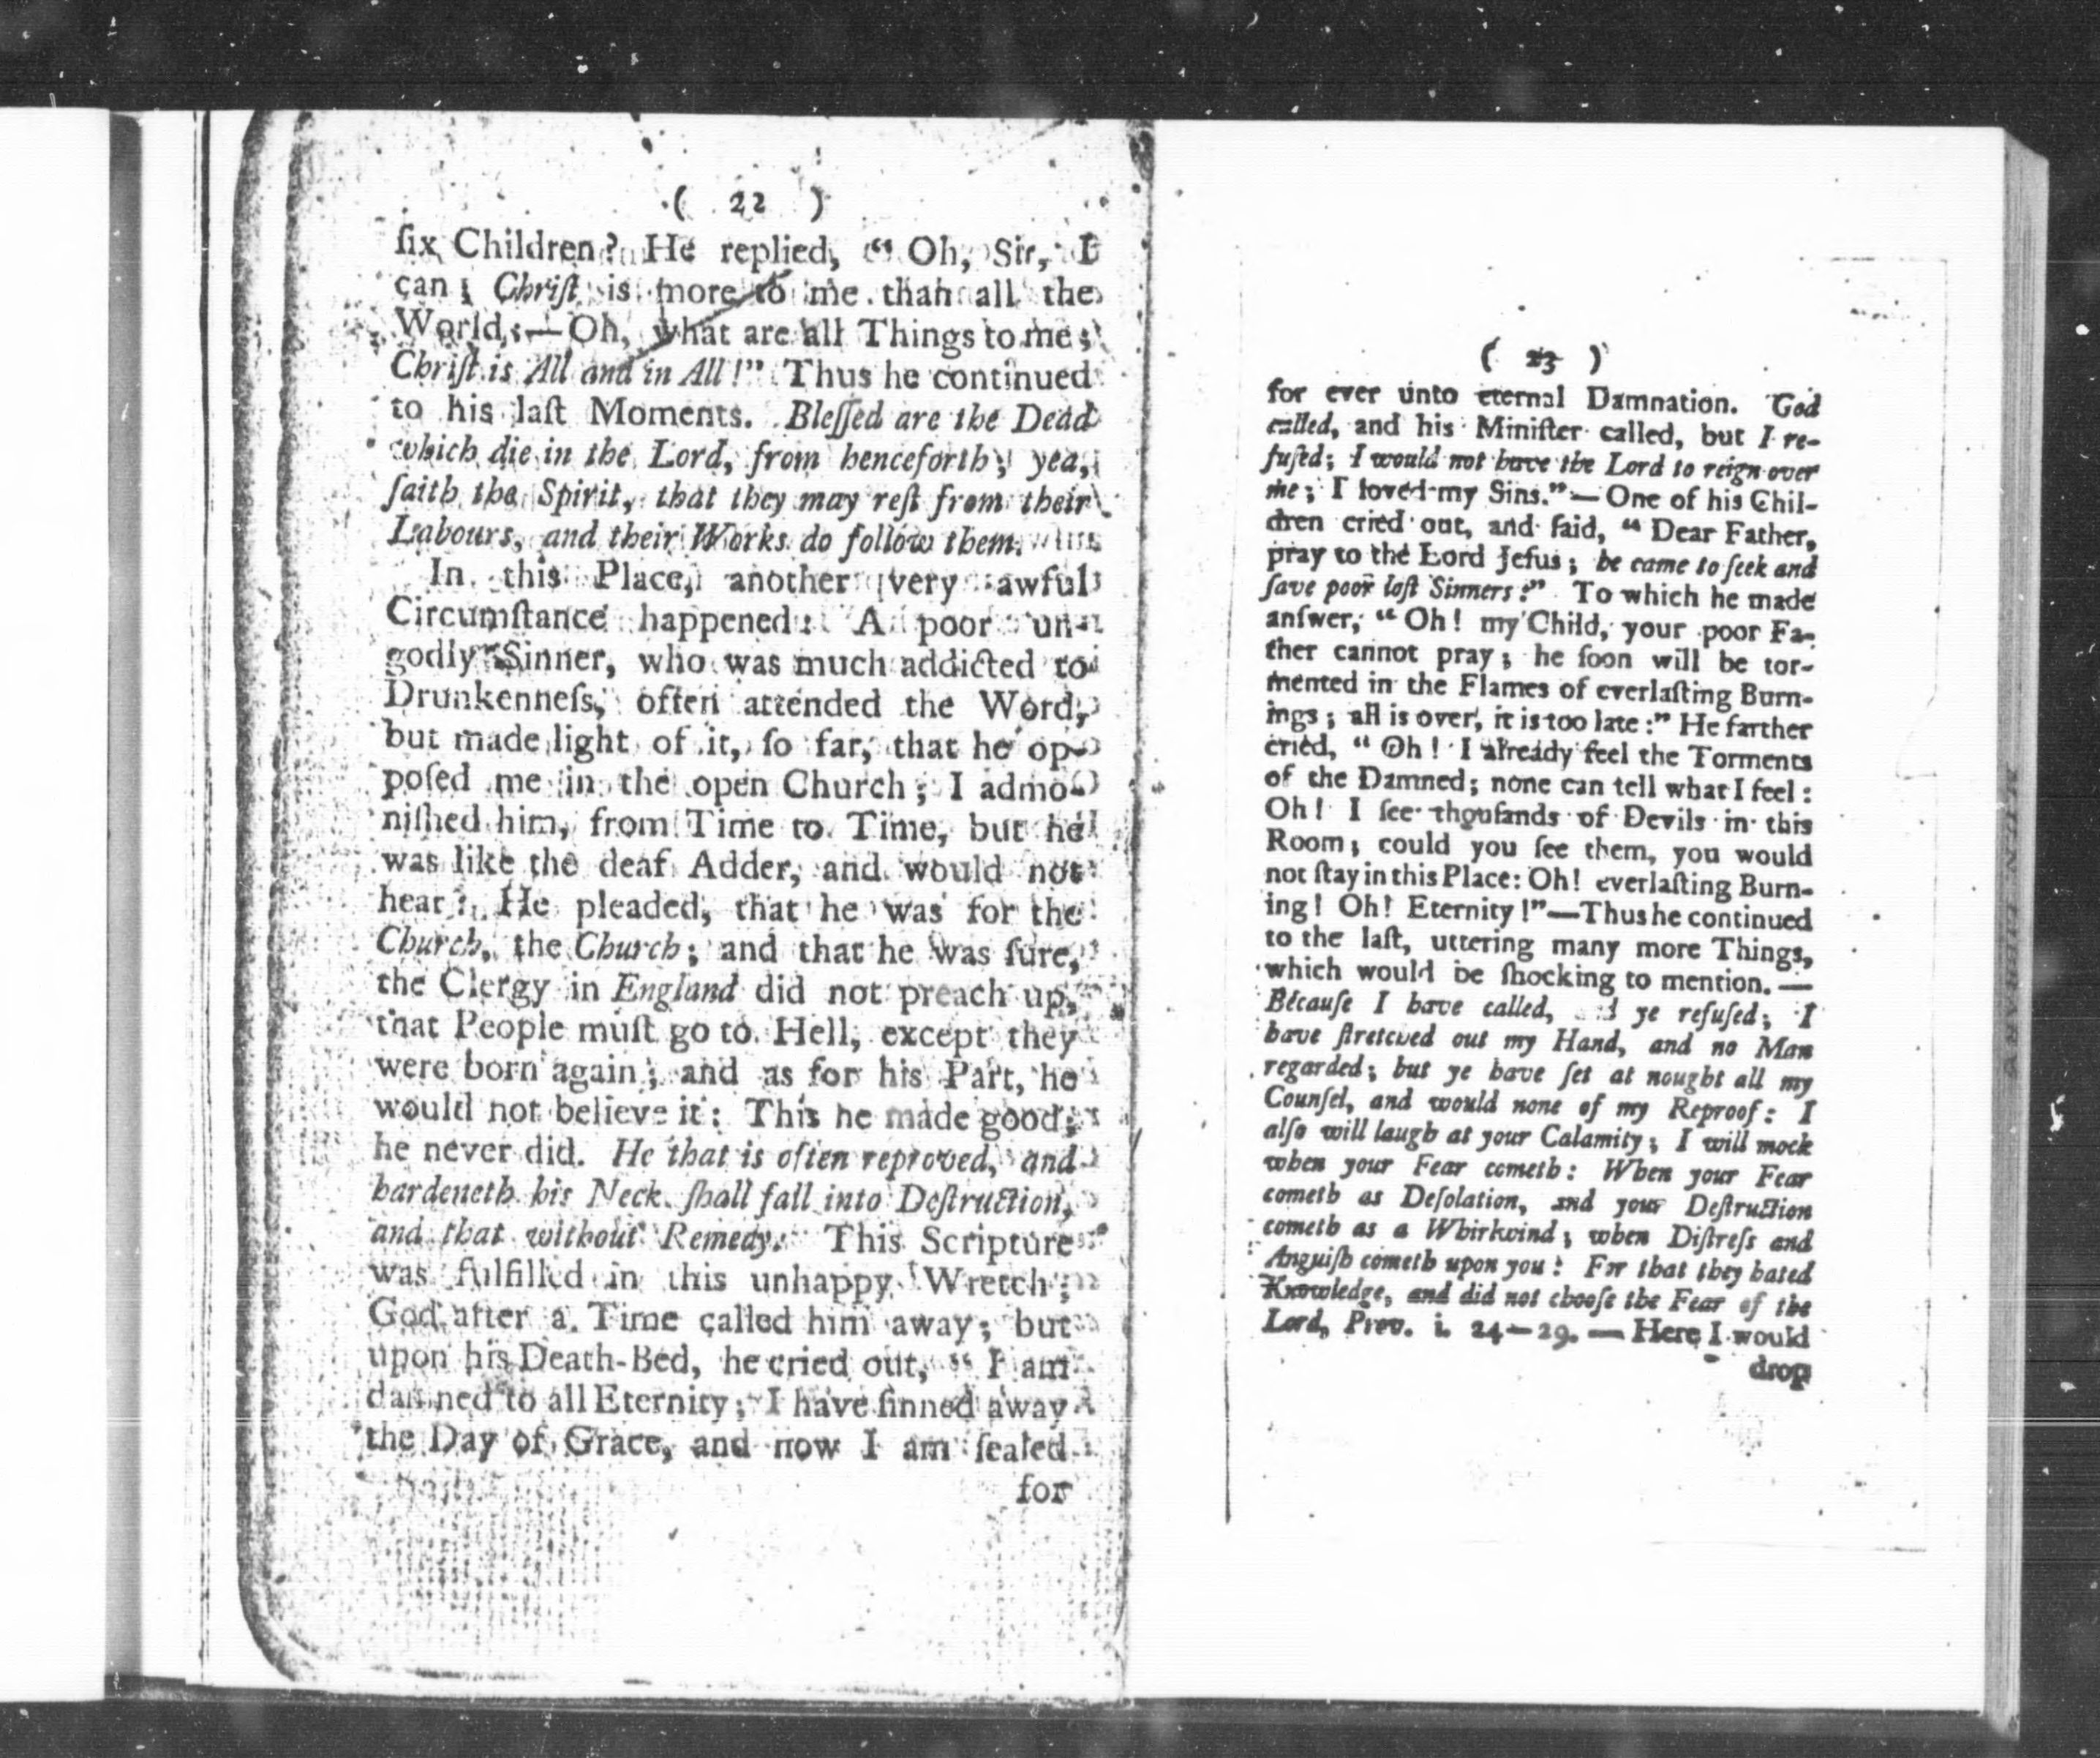 ( 22 )
ſix Children? He replied, “ Oh, Sir, I
can; Chriſt is more to me than all the
World;—Oh, what are all Things to me;
Chriſt is All and in All!” Thus he continued
to his laſt Moments. Bleſſed are the Dead
which die in the Lord, from henceforth; yea,
ſaith the Spirit, that they may reſt from their
Labours, and their Works do follow them.
In this Place, another very awful
Circumſtance happened: A poor un-
godly Sinner, who was much addicted to
Drunkenneſs, often attended the Word,
but made light of it, ſo far, that he op-
poſed me in the open Church; I admo-
niſhed him, from Time to Time, but he
was like the deaf Adder, and would not
hear: He pleaded, that he was for the
Church, the Church; and that he was ſure,
the Clergy in England did not preach up,
that People muſt go to Hell, except they
were born again; and as for his Part, he
would not believe it: This he made good;
he never did. He that is often reproved, and
hardeneth his Neck ſhall fall into Deſtruction,
and that without Remedy. This Scripture
was fulfilled in this unhappy Wretch;
God after a Time called him away; but
upon his Death-Bed, he cried out, “ I am
damned to all Eternity; I have ſinned away
the Day of Grace, and now I am ſealed
for
( 23 )
for ever unto eternal Damnation. God
called, and his Miniſter called, but I re-
fuſed; I would not have the Lord to reign over
me; I loved my Sins.”—One of his Chil-
dren cried out, and ſaid, “ Dear Father,
pray to the Lord Jeſus; he came to ſeek and
ſave poor loſt Sinners:” To which he made
anſwer, “ Oh! my Child, your poor Fa-
ther cannot pray; he ſoon will be tor-
mented in the Flames of everlaſting Burn-
ings; all is over, it is too late:” He farther
cried, “ Oh! I already feel the Torments
of the Damned; none can tell what I feel:
Oh! I ſee thouſands of Devils in this
Room; could you ſee them, you would
not ſtay in this Place: Oh! everlaſting Burn-
ing! Oh! Eternity!”—Thus he continued
to the laſt, uttering many more Things,
which would be ſhocking to mention.—
Becauſe I have called, ye refuſed; I
have ſtretched out my Hand, and no Man
regarded; but ye have ſet at nought all my
Counſel, and would none of my Reproof: I
alſo will laugh at your Calamity; I will mock
when your Fear cometh: When your Fear
cometh as Deſolation, and your Deſtruction
cometh as a Whirlwind; when Diſtreſs and
Anguiſh cometh upon you: For that they hated
Knowledge, and did not chooſe the Fear of the
Lord, Prov. i. 24—29.—Here I would
drop